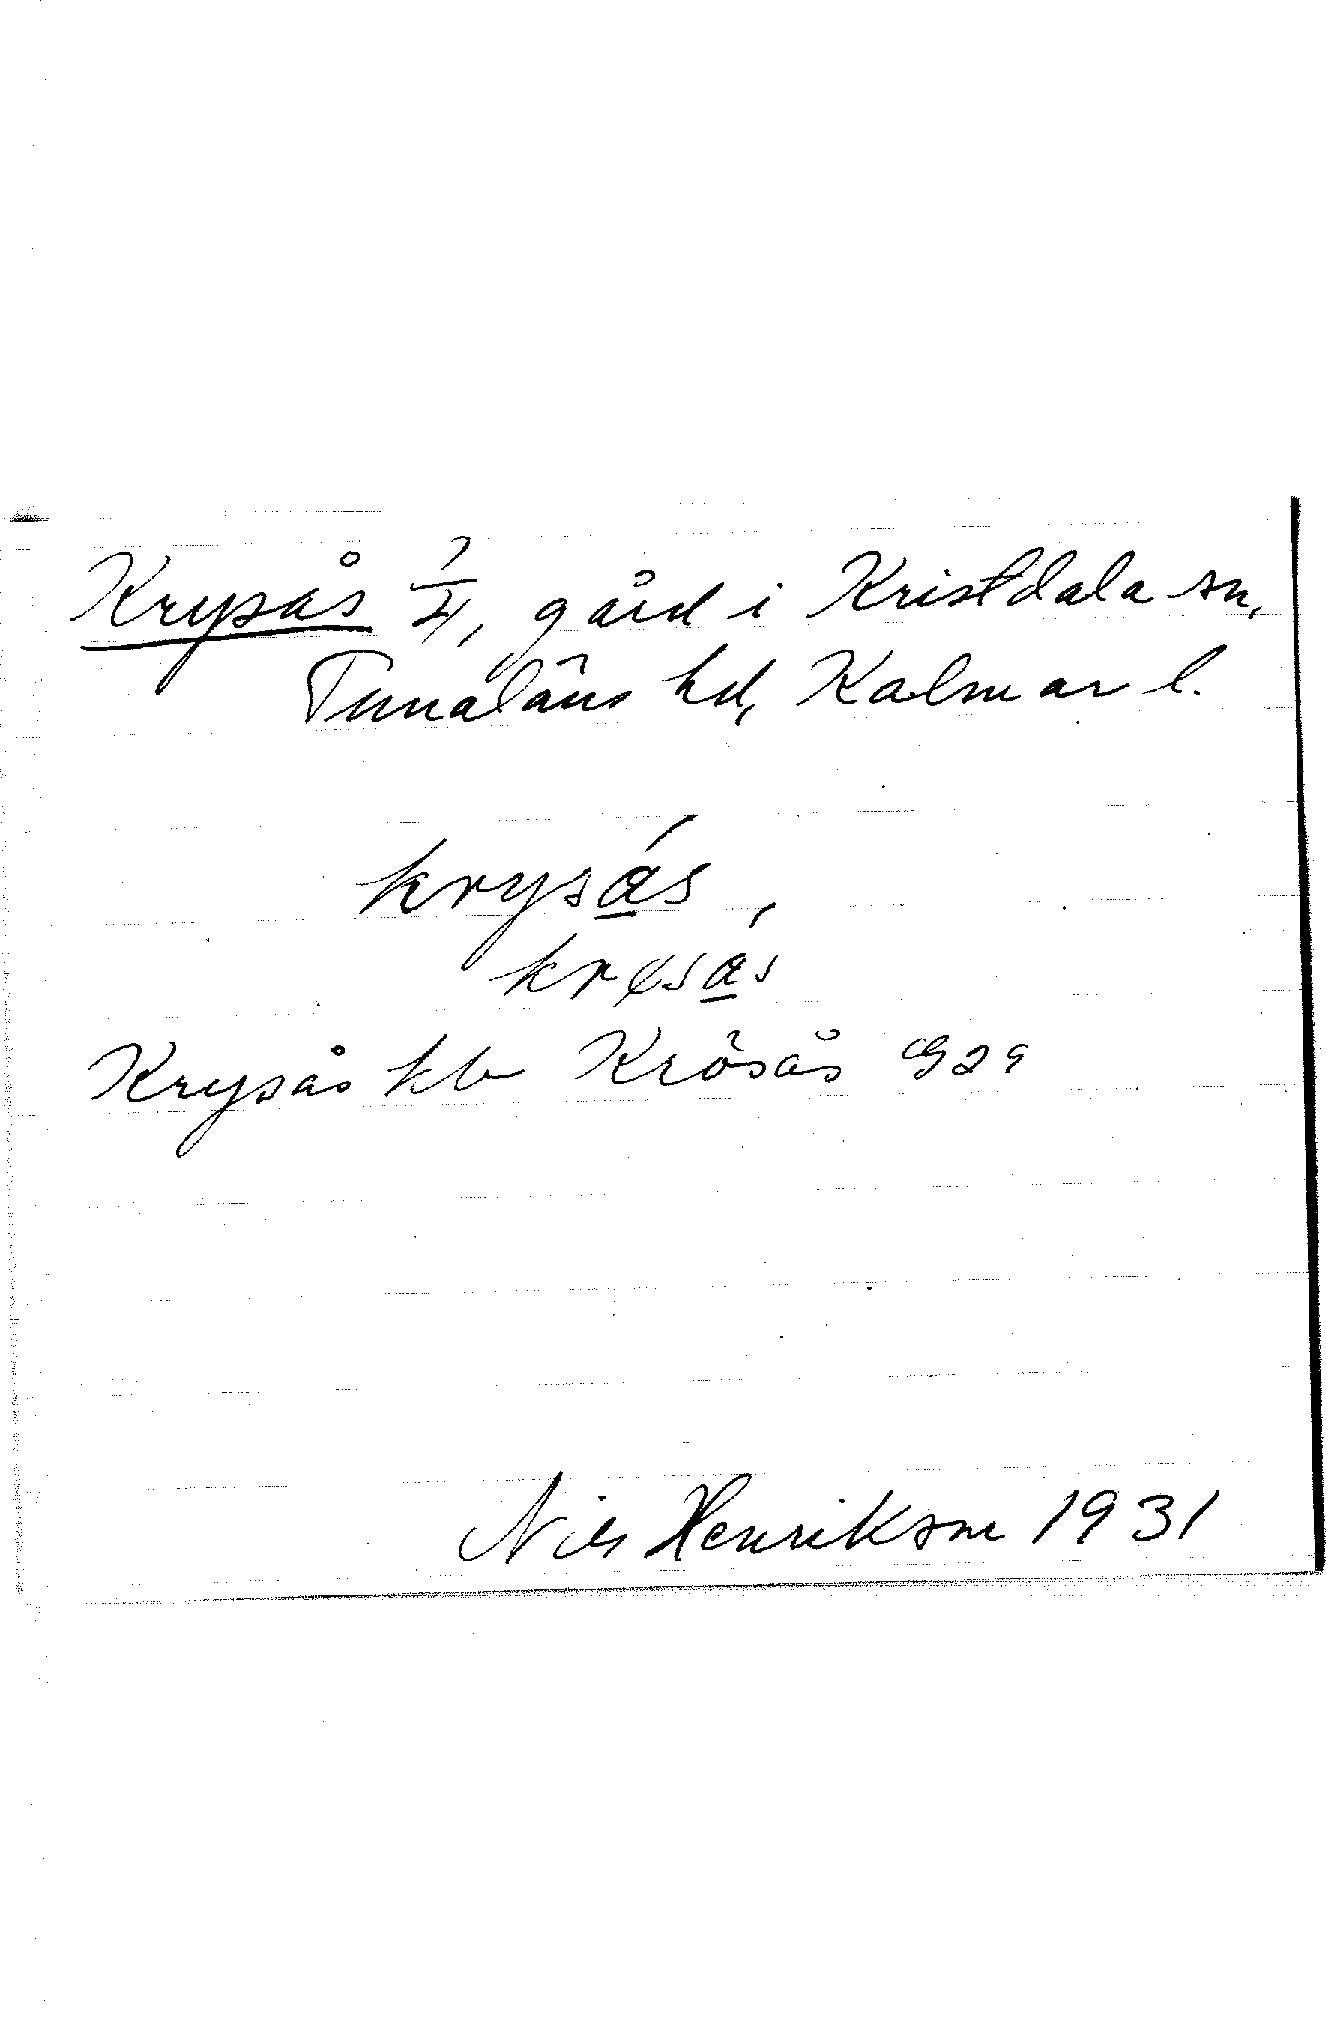 Krysås 1/4, gård i Kristdala sn,
Tunaläns hd, Kalmar l.
krysás,
krøsás
Krysås kb Krösås 1929
Nils Henrikson 1931